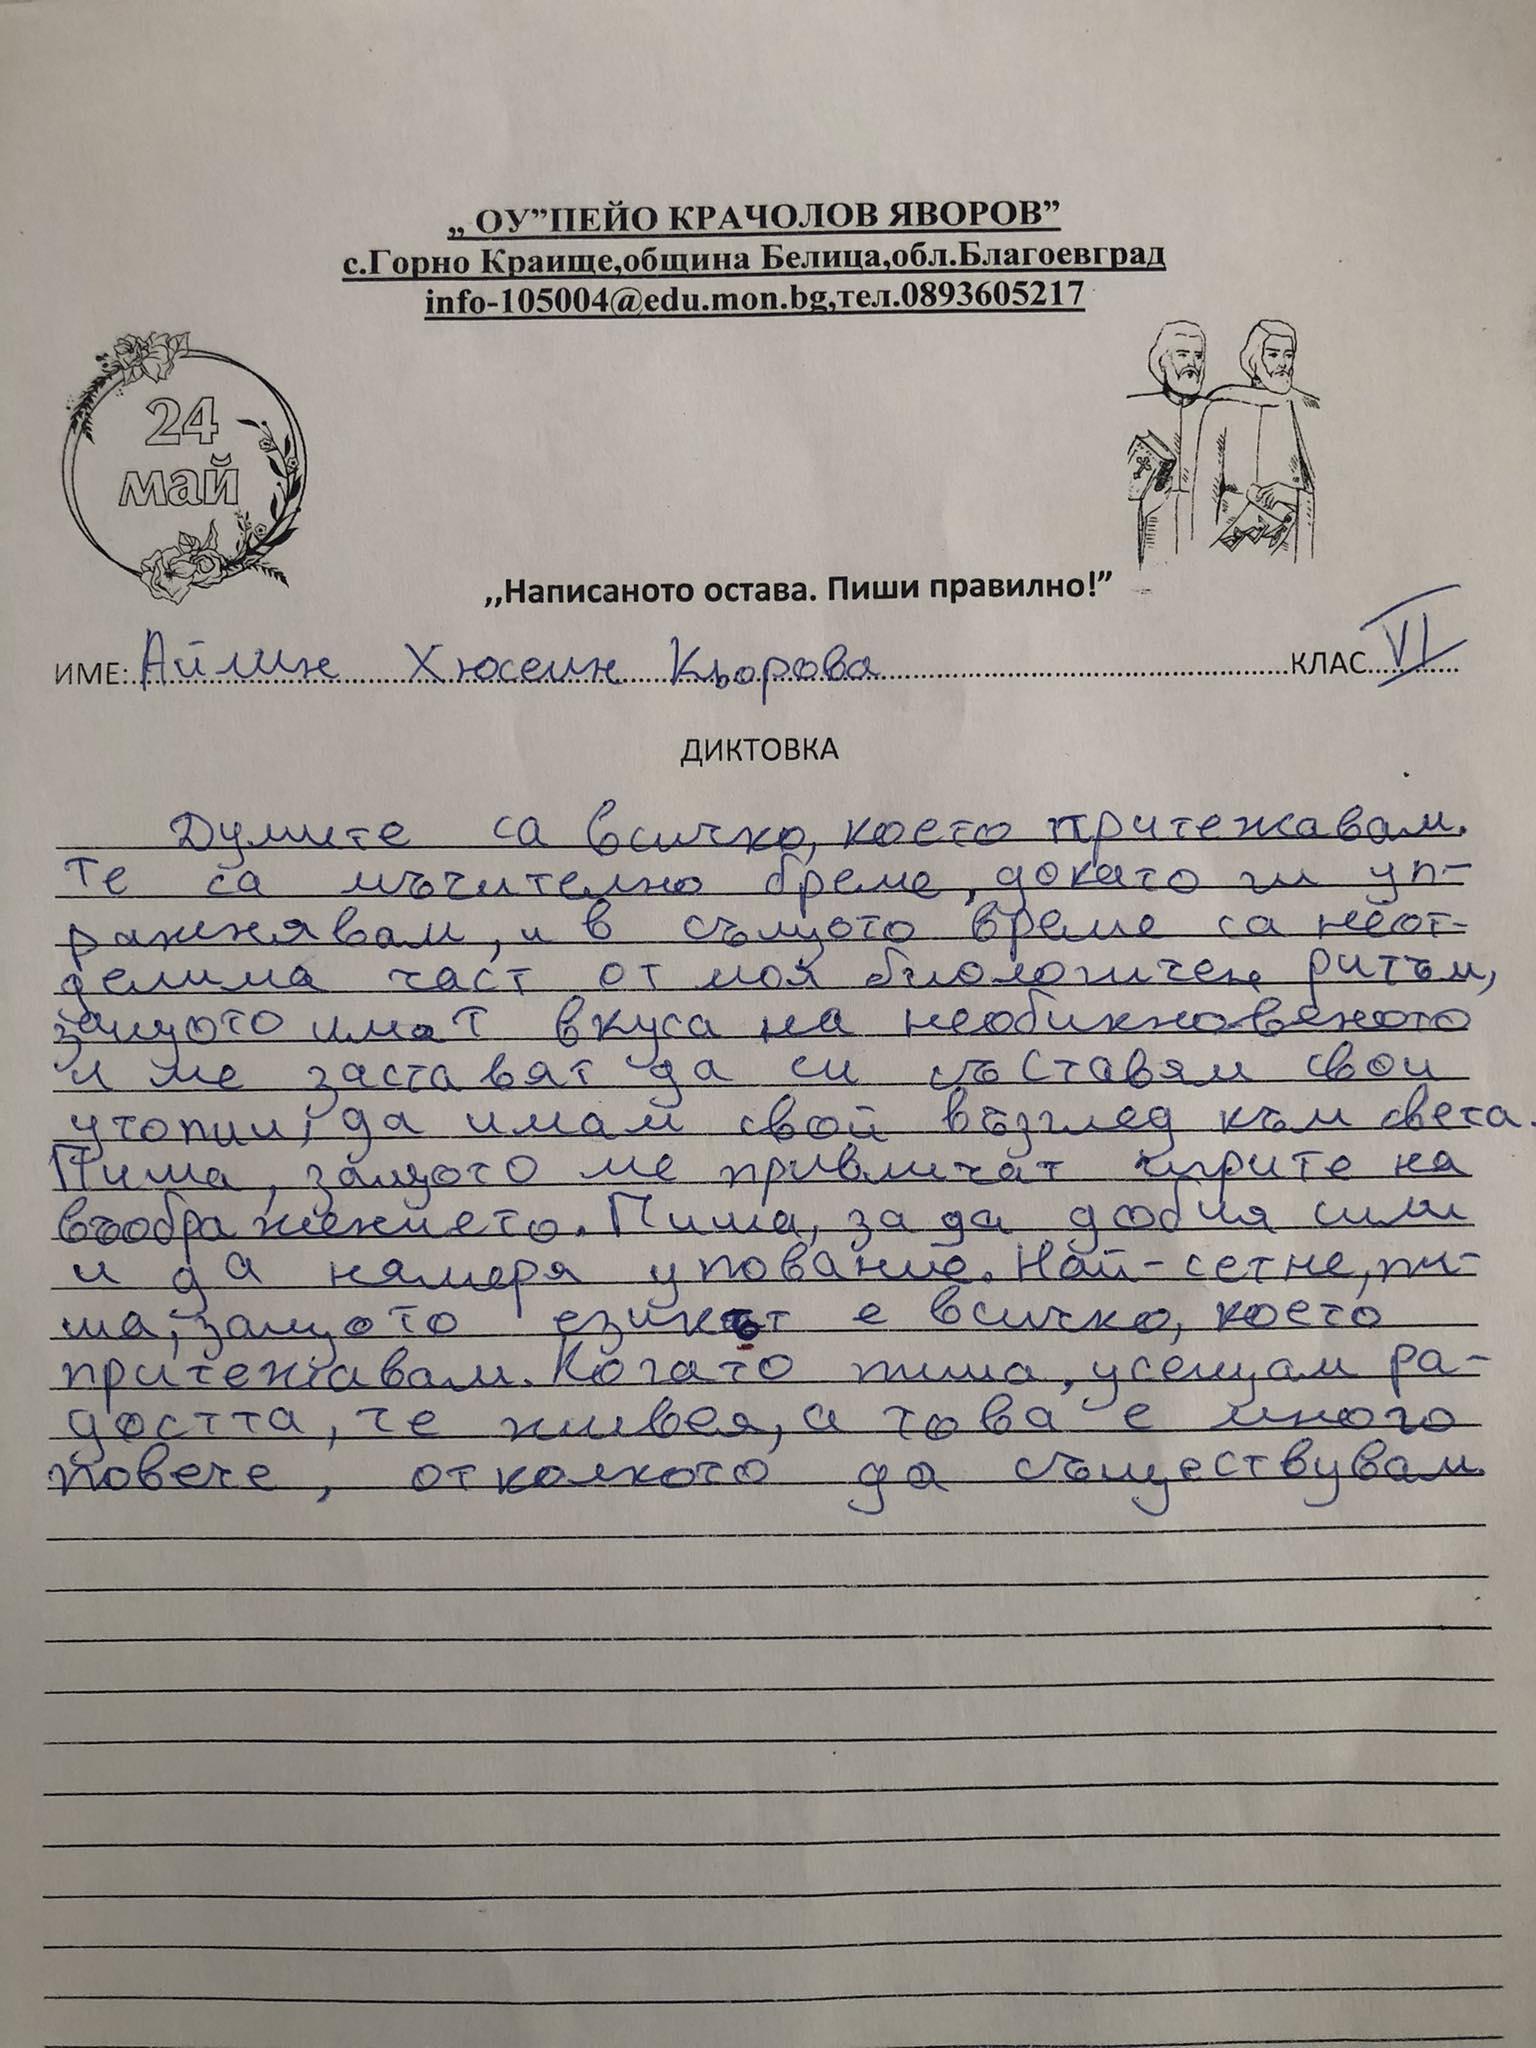 „ ОУ”ПЕЙО КРАЧОЛОВ ЯВОРОВ”
с.Горно Краище,община Белица,обл.Благоевград
info-105004@edu.mon.bg,тел.0893605217
24
май
,,Написаното остава. Пиши правилно!”
ИМЕ: Айлин Хюсеин Кьорова КЛАС VI
ДИКТОВКА
Думите са всичко, което притежавам.
Те са мъчително бреме, докато ги уп-
ражнявам, и в същото време са неот-
делима част от моя биологичен ритъм,
защото имат вкуса на необикновеното
и ме заставят да си съставям свои
утопии, да имам свой възглед към света.
Пиша, защото ме привличат игрите на
въображението. Пиша, за да добия сили
и да намеря упование. Най-сетне, пи-
ша, защото езикът е всичко, което
притежавам. Когато пиша, усещам ра-
достта, че живея, а това е много
повече, отколкото да съществувам.